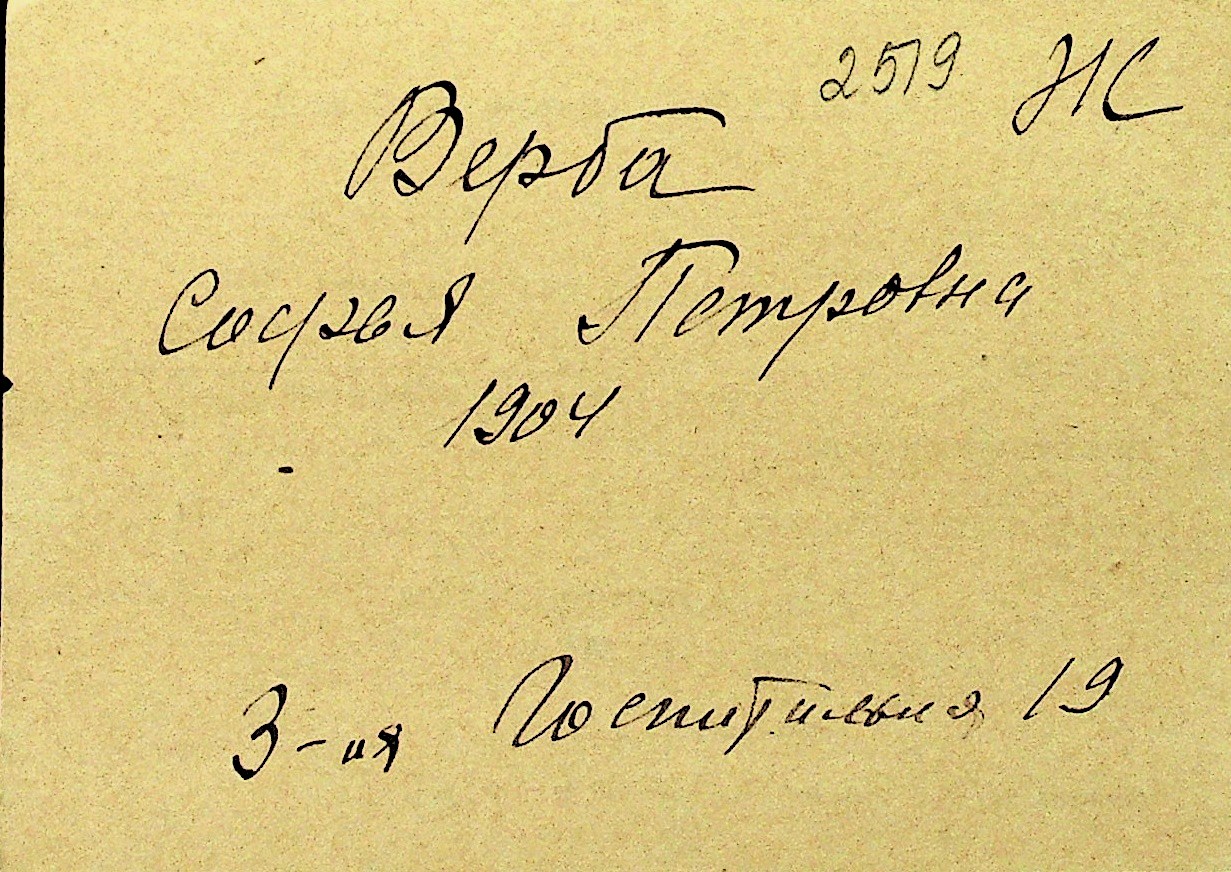 2519 НС
Верба
Софья Петровна
1904
3-ия Госпитальная 19